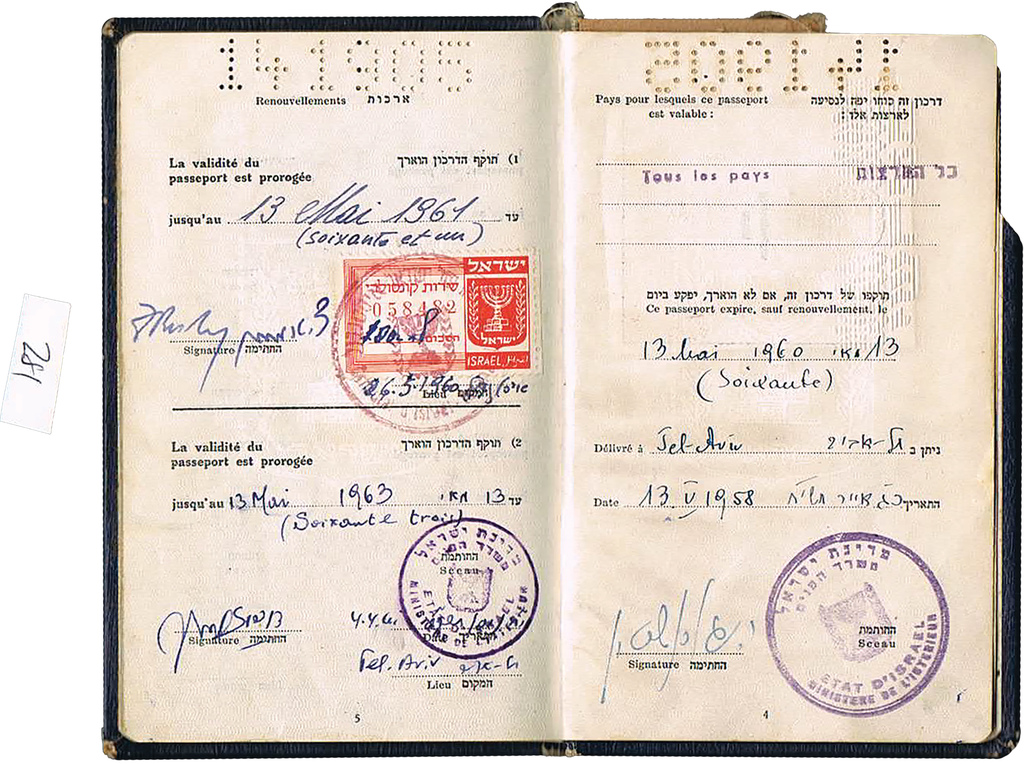 141905
Renouvellements ארכות
La validité du
passeport est prorogée
1) תוקף הדרכון הוארך
jusqu'au 13 Mai 1961 עד
(soixante et un)
ישראל
שירות קונסולרי
058482
הסכום
ישראל
ISRAEL
Signature החתימה
26.5.1960
Lieu המקום
La validité du
passeport est prorogée
2) תוקף הדרכון הוארך
jusqu'au 13 Mai 1963 מאי 13 עד
(Soixante trois)
מדינת ישראל
משרד הפנים
החותמת
Sceau
ETAT D'ISRAEL
MINISTERE DE L'INTERIEUR
Signature החתימה
Date התאריך
Tel-Aviv תל-אביב
Lieu המקום
5
141905
Pays pour lesquels ce passeport
est valable :
דרכון זה כוחו יפה לנסיעה
לארצות אלו :
Tous les pays כל הארצות
תוקפו של דרכון זה, אם לא הוארך, יפקע ביום
Ce passeport expire, sauf renouvellement, le
13 Mai 1960 מאי 13
(Soixante)
Délivré à Tel-Aviv תל-אביב ניתן ב
Date 13 V 1958 כג אייר תשי"ח התאריך
מדינת ישראל
משרד הפנים
החותמת
Sceau
ETAT D'ISRAEL
MINISTERE DE L'INTERIEUR
Signature החתימה
4
281